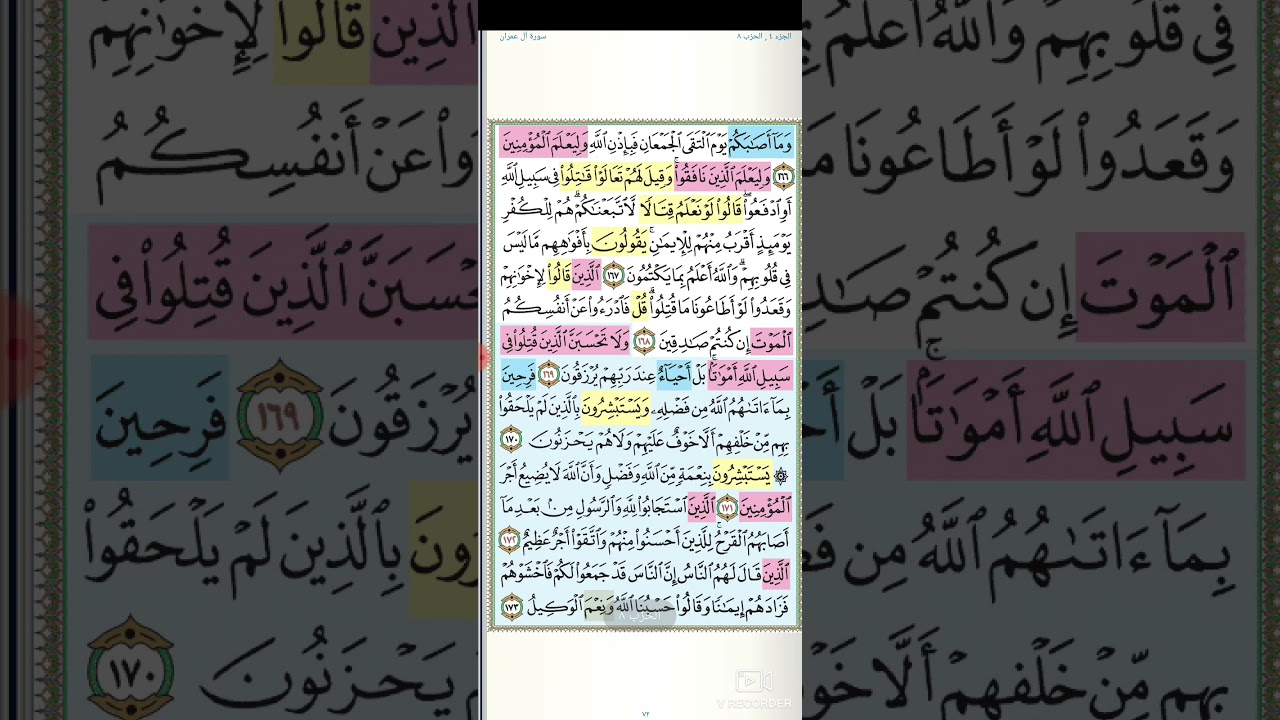 الجزء ٤ , الحزب ٨
سورة آل عمران
وَمَآ أَصَٰبَكُمْ يَوْمَ ٱلْتَقَى ٱلْجَمْعَانِ فَبِإِذْنِ ٱللَّهِ وَلِيَعْلَمَ ٱلْمُؤْمِنِينَ
١٦٦ وَلِيَعْلَمَ ٱلَّذِينَ نَافَقُوا۟ۚ وَقِيلَ لَهُمْ تَعَالَوْا۟ قَٰتِلُوا۟ فِى سَبِيلِ ٱللَّهِ
أَوِ ٱدْفَعُوا۟ۖ قَالُوا۟ لَوْ نَعْلَمُ قِتَالًا لَّٱتَّبَعْنَٰكُمْۗ هُمْ لِلْكُفْرِ
يَوْمَئِذٍ أَقْرَبُ مِنْهُمْ لِلْإِيمَٰنِۚ يَقُولُونَ بِأَفْوَٰهِهِم مَّا لَيْسَ
فِى قُلُوبِهِمْۗ وَٱللَّهُ أَعْلَمُ بِمَا يَكْتُمُونَ ١٦٧ ٱلَّذِينَ قَالُوا۟ لِإِخْوَٰنِهِمْ
وَقَعَدُوا۟ لَوْ أَطَاعُونَا مَا قُتِلُوا۟ۗ قُلْ فَٱدْرَءُوا۟ عَنْ أَنفُسِكُمُ
ٱلْمَوْتَ إِن كُنتُمْ صَٰدِقِينَ ١٦٨ وَلَا تَحْسَبَنَّ ٱلَّذِينَ قُتِلُوا۟ فِى
سَبِيلِ ٱللَّهِ أَمْوَٰتًۢاۚ بَلْ أَحْيَآءٌ عِندَ رَبِّهِمْ يُرْزَقُونَ ١٦٩ فَرِحِينَ
بِمَآ ءَاتَىٰهُمُ ٱللَّهُ مِن فَضْلِهِۦ وَيَسْتَبْشِرُونَ بِٱلَّذِينَ لَمْ يَلْحَقُوا۟
بِهِم مِّنْ خَلْفِهِمْ أَلَّا خَوْفٌ عَلَيْهِمْ وَلَا هُمْ يَحْزَنُونَ ١٧٠
۞ يَسْتَبْشِرُونَ بِنِعْمَةٍ مِّنَ ٱللَّهِ وَفَضْلٍ وَأَنَّ ٱللَّهَ لَا يُضِيعُ أَجْرَ
ٱلْمُؤْمِنِينَ ١٧١ ٱلَّذِينَ ٱسْتَجَابُوا۟ لِلَّهِ وَٱلرَّسُولِ مِنۢ بَعْدِ مَآ
أَصَابَهُمُ ٱلْقَرْحُۚ لِلَّذِينَ أَحْسَنُوا۟ مِنْهُمْ وَٱتَّقَوْا۟ أَجْرٌ عَظِيمٌ ١٧٢
ٱلَّذِينَ قَالَ لَهُمُ ٱلنَّاسُ إِنَّ ٱلنَّاسَ قَدْ جَمَعُوا۟ لَكُمْ فَٱخْشَوْهُمْ
فَزَادَهُمْ إِيمَٰنًا وَقَالُوا۟ حَسْبُنَا ٱللَّهُ وَنِعْمَ ٱلْوَكِيلُ ١٧٣
الحزب ٨
V RECORDER
٧٢